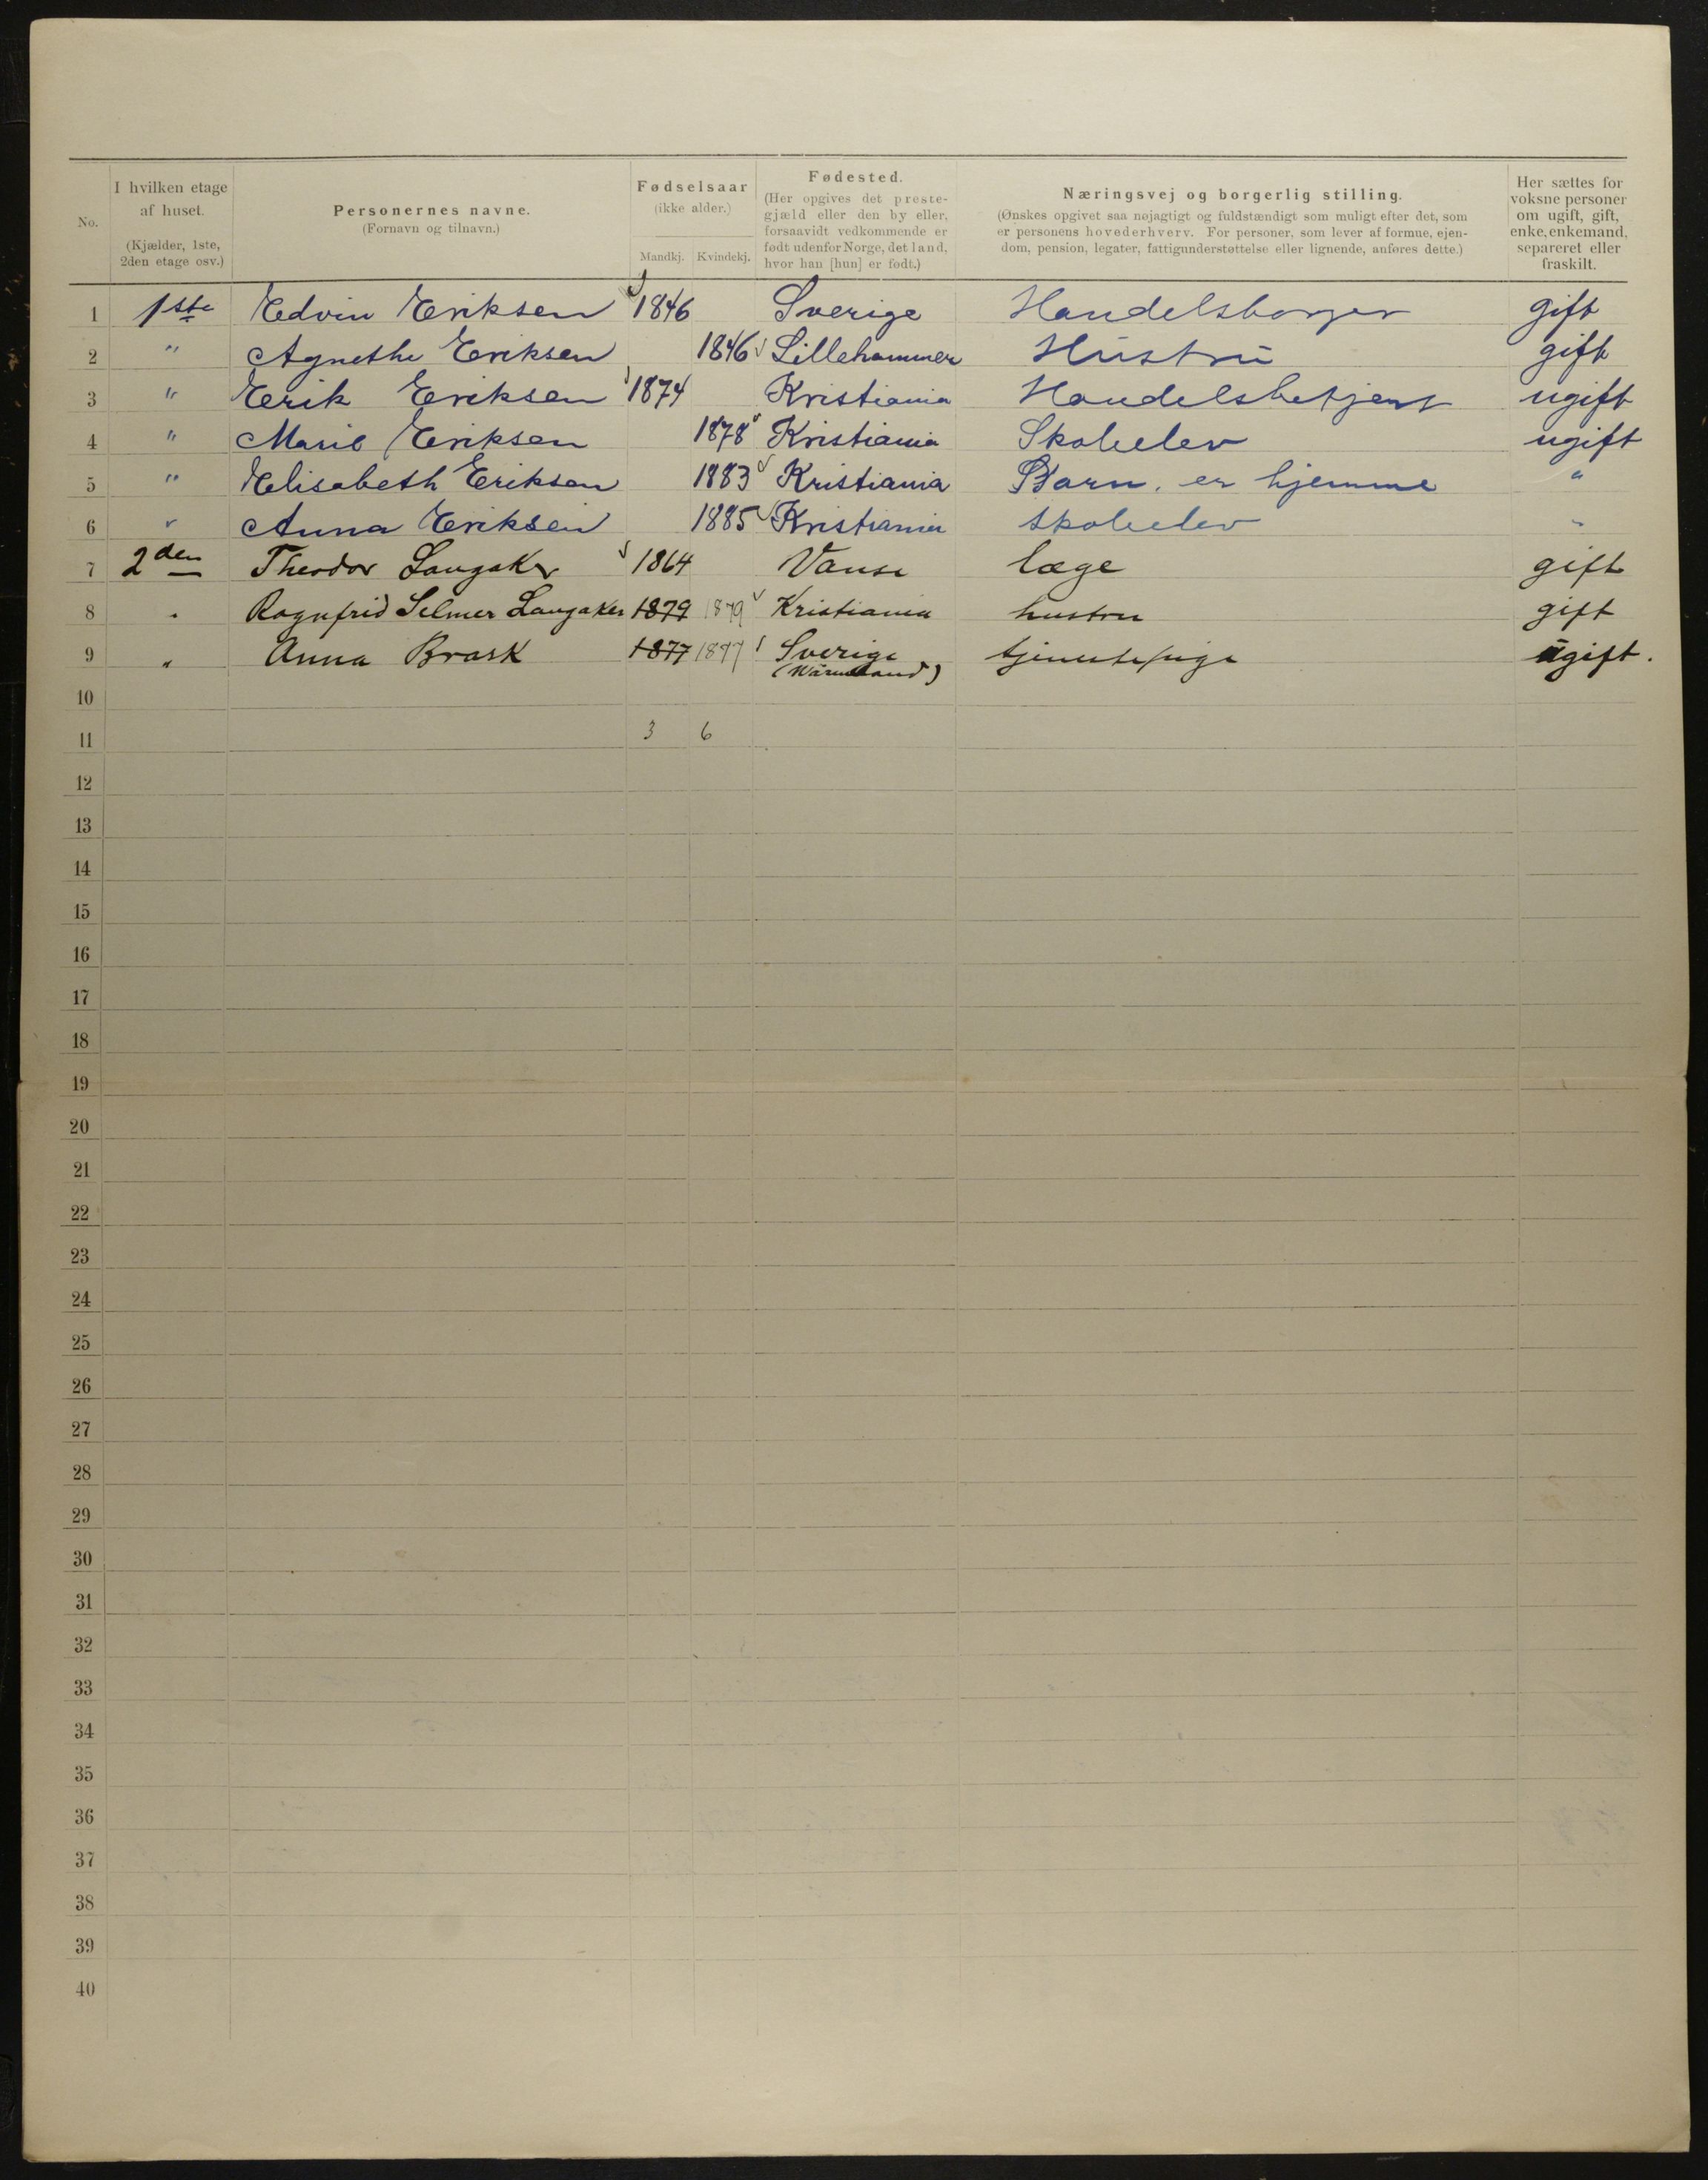 No.
I hvilken etage af huset. (Kjælder, 1ste, 2den etage osv.)
Personernes navne. (Fornavn og tilnavn.)
Fødselsaar (ikke alder.) Mandkj. Kvindekj.
Fødested. (Her opgives det prestegjæld eller den by eller, forsaavidt vedkommende er født udenfor Norge, det land, hvor han [hun] er født.)
Næringsvej og borgerlig stilling. (Ønskes opgivet saa nøjagtigt og fuldstændigt som muligt efter det, som er personens hovederhverv. For personer, som lever af formue, ejendom, pension, legater, fattigunderstøttelse eller lignende, anføres dette.)
Her sættes for voksne personer om ugift, gift, enke, enkemand, separeret eller fraskilt.
1 1ste Edvin Eriksen 1846 Sverige Handelsborger gift
2 " Agnethe Eriksen 1846 Lillehammer Hustru gift
3 " Erik Eriksen 1874 Kristiania Handelsbetjent ugift
4 " Marie Eriksen 1878 Kristiania Skoleelev ugift
5 " Elisabeth Eriksen 1883 Kristiania Barn, er hjemme "
6 " Anna Eriksen 1885 Kristiania Skoleelev "
7 2den Theodor Langaker 1864 Vanse læge gift
8 " Ragnfrid Selmer Langaker 1879 1879 Kristiania hustru gift
9 " Anna Brask 1877 1877 Sverige tjenestepige ugift.
(Wärmland)
10
11 3 6
12
13
14
15
16
17
18
19
20
21
22
23
24
25
26
27
28
29
30
31
32
33
34
35
36
37
38
39
40